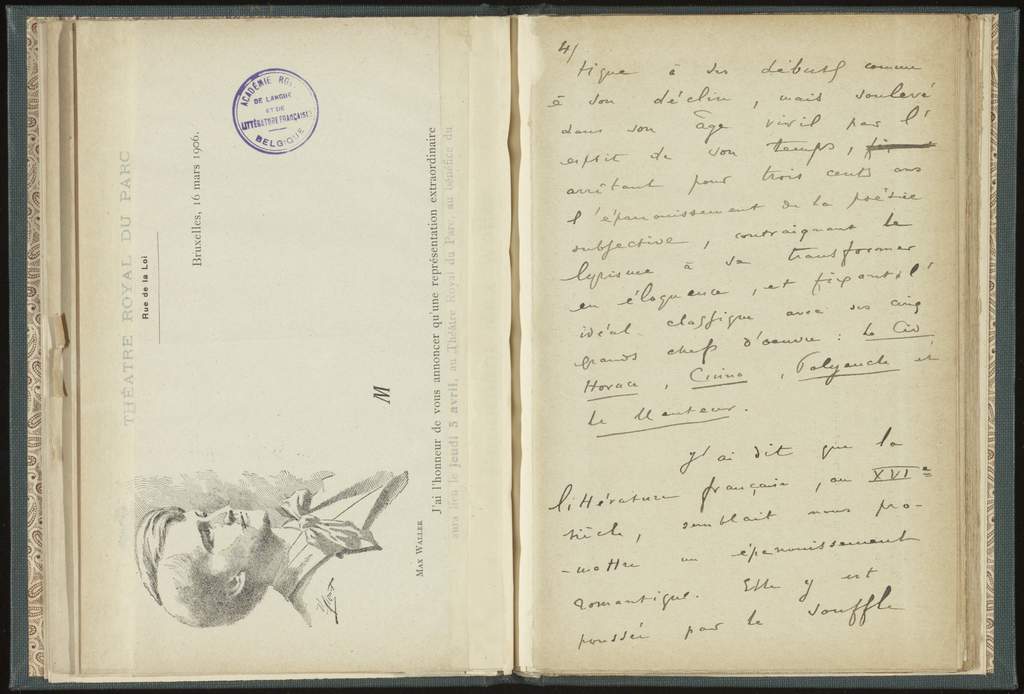 THÉATRE ROYAL DU PARC
Rue de la Loi
Bruxelles, 16 mars 1906.
ACADÉMIE RO
DE LANGUE
ET DE
LITTÉRATURE FRANÇAISES
BELGIQUE
M
MAX WALLER
J'ai l'honneur de vous annoncer qu'une représentation extraordinaire
aura lieu le jeudi 5 avril, au Théâtre Royal du Parc, au bénéfice du
4/
tique à ses débuts comme
à son déclin, mais soulevé
dans son âge viril par l'
esprit de son temps,
arrêtant pour trois cents ans
l'épanouissement de la poésie
subjective, contraignant le
lyrisme à se transformer
en éloquence, et fixant l'
idéal classique avec ses cinq
grands chefs d'oeuvre : Le Cid
Horace, Cinna, Polyeucte et
Le Menteur.
J'ai dit que la
littérature française, au XVIe
siècle, semblait nous pro-
-mettre un épanouissement
romantique. Elle y est
poussée par le souffle